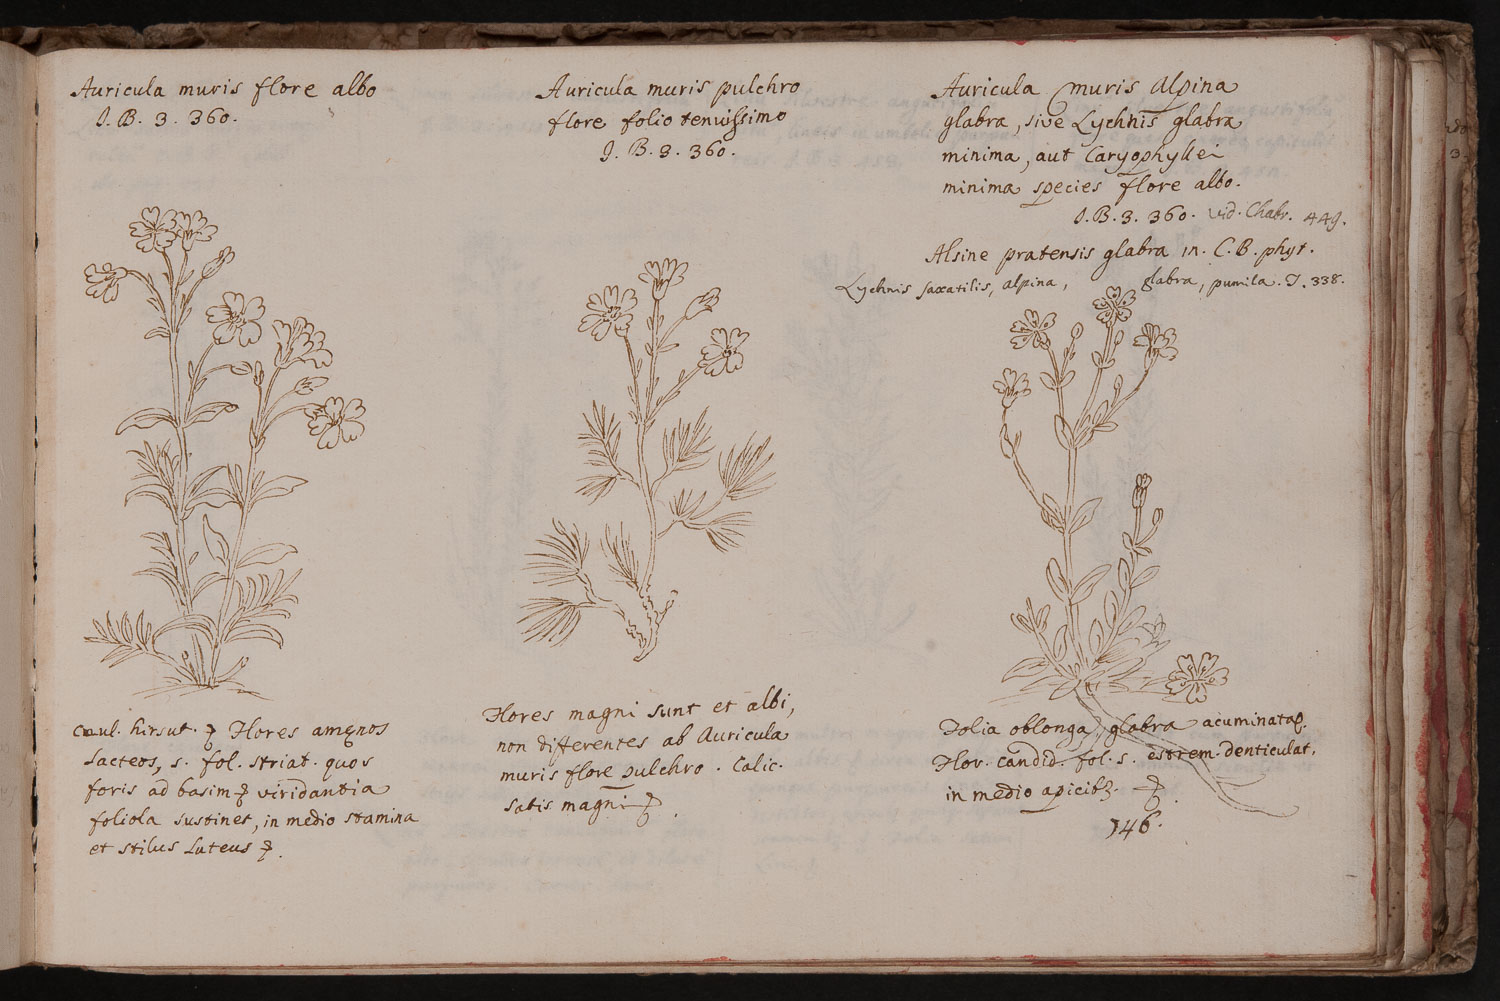 Auricula muris flore albo
J. B. 3. 360.
Auricula muris pulchro
flore folio tenuissimo
J. B. 3. 360.
Auricula muris Alpina
glabra, sive Lychnis glabra
minima, aut Caryophyllei
minima species flore albo.
J. B. 3. 360. vid. Chabr. 449.
Alsine pratensis glabra in. C. B. phyt.
Lychnis saxatilis, alpina, glabra, pumila. T. 338.
caul. hirsut. Flores amęnos
lacteos, 5. fol. striat. quos
foris ad basim viridantia
foliola sustinet, in medio stamina
et stilus luteus
Flores magni sunt et albi,
non differentes ab Auricula
muris flore pulchro. Calic.
satis magni
Folia oblonga, glabra acuminataq.
Flor. candid. fol. 5. extrem. denticulat.
in medio apicib3.
146.